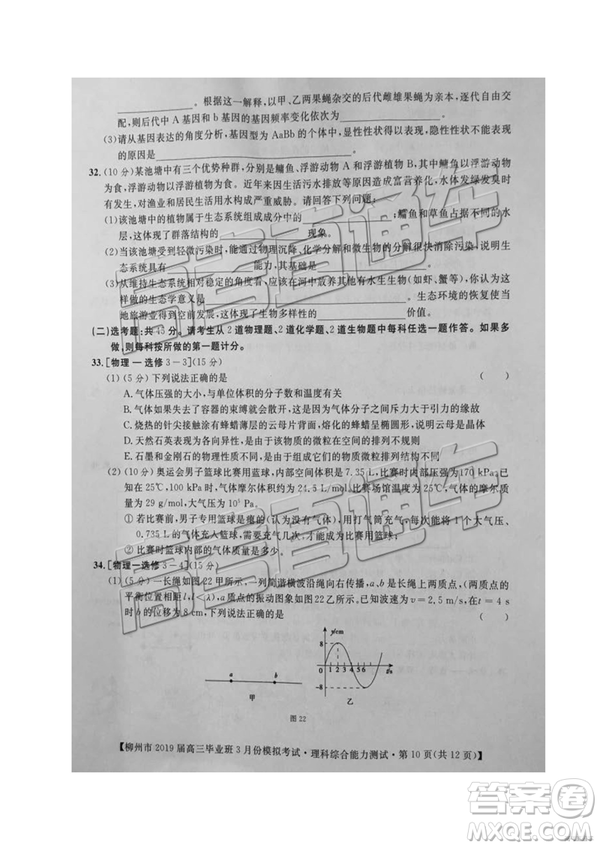 。根据这一解释,以甲、乙两果蝇杂交的后代雌雄果蝇为亲本,逐代自由交
配,则后代中A基因和b基因的基因频率变化依次为 。
(3)请从基因表达的角度分析,基因型为AaBb的个体中,显性性状得以体现,隐性性状不能表现
的原因: 。
32.(10分)某池塘中有三个优势种群,分别是鳙鱼、浮游动物A、浮游植物B,其中鳙鱼以浮游动物
为食,浮游动物以浮游植物为食。近年来因生活污水排放等造成富营养化,导致绿藻爆发更
对渔业和居民生活用水构成严重威胁。请回答下列问题:
(1)该池塘中的植物属于生态系统组成成分中的 ;鳙鱼和草鱼占据了不同的水
层,这体现了群落的 现象。
(2)该池塘受到轻微污染时,能通过物理沉降、化学分解和微生物的分解很快消除污染,说明生
态系统具有 能力,其基础是 。
(3)
样做的生态学意义是 。生态系统的恢复使当
地旅游业得到空前发展,这体现了 价值。
(二)选考题:共45分。请考生从2道物理题、2道化学题、2道生物题中每科任选一题作答。如果多
做,则每科按所做的第一题计分。
33.[物理—选修3-3](15分)
(1)(5分)下列说法正确的是 ( )
A.影响气体压强大小的两个因素是单位体积的分子数和温度
B.气体如果失去了容器的束缚就会散开,这是因为气体分子之间斥力大于引力的缘故
C.烧热的针尖接触涂有蜂蜡薄层的云母片背面,熔化的蜂蜡呈椭圆形,说明蜂蜡是晶体
D.天然石英表现为各向异性,是由于该物质的微粒在空间的排列不规则
E.石墨和金刚石的物理性质不同,是由于组成它们的物质微粒排列结构不同
(2)(10分)奥运会男子篮球比赛用篮球,内部空间的容积是7.35 L,比赛时内部压强为170 kPa。已
知在25℃,100 kPa时,气体摩尔体积约为24.5 L/mol。比赛场馆温度为25℃,空气的摩尔质
量为29 g/mol,大气压为p₀=100 kPa,
①若比赛前,男子专用篮球是瘪的(认为没有气体),用打气筒充气,一次能将1个大气压、
0.735 L的气体充入篮球,需要充气几次,才能成为比赛用的篮球?
②比赛时篮球内部的空气质量是多少?
34.[物理—选修3-4](15分)
(1)(5分)一长绳如图22甲所示,一列简谐横波沿绳向右传播,a、b是绳上两质点,(两质点的
平衡位置相距l,l<λ),a质点的振动图象如图22乙所示。已知波速为v=2.5 m/s,在t=4 s
时b的位移为8 cm,下列说法正确的是 ( )
y/cm
8
0
1 2 3 4 5 6
t/s
-8
a
b
甲
乙
图22
【柳州市2019届高三毕业班3月份模拟考试·理科综合能力测试·第10页(共12页)】
高考直通车
高考直通车
答案圈
MXQE.COM